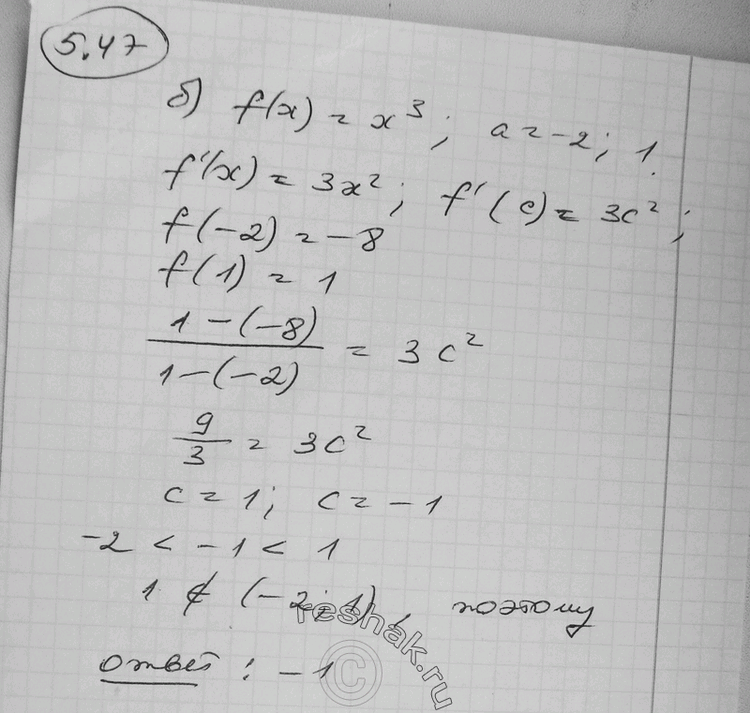 5.47
б) f(x) = x³; a = -2; 1.
f'(x) = 3x²; f'(c) = 3c²;
f(-2) = -8
f(1) = 1
1-(-8) / 1-(-2) = 3c²
9/3 = 3c²
c = 1; c = -1
-2 < -1 < 1
1 ∉ (-2; 1), поэтому
ответ: -1
reshak.ru
©